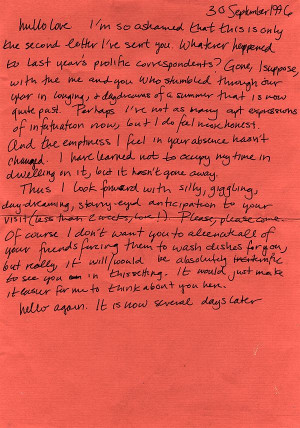 30 September 1996
hullo love I'm so ashamed that this is only
the second letter I've sent you. Whatever happened
to last year's prolific correspondents? Gone, I suppose,
with the me and you who stumbled through our
year in longing, & daydreams of a summer that is now
quite past. Perhaps I've not as many apt expressions
of infatuation now, but I do feel more honest.
And the emptiness I feel in your absence hasn't
changed. I have learned not to occupy my time in
dwelling on it, but it hasn't gone away.
Thus I look forward with silly, giggling,
daydreaming, starry-eyed anticipation to your
visit (less than 2 weeks, love!). Please, please come.
Of course I don't want you to alienate all of
your friends forcing them to wash dishes for you,
but really, it will/would be absolutely terrific
to see you in this setting. It would just make
it easier for me to think about you here.
hello again. It is now several days later